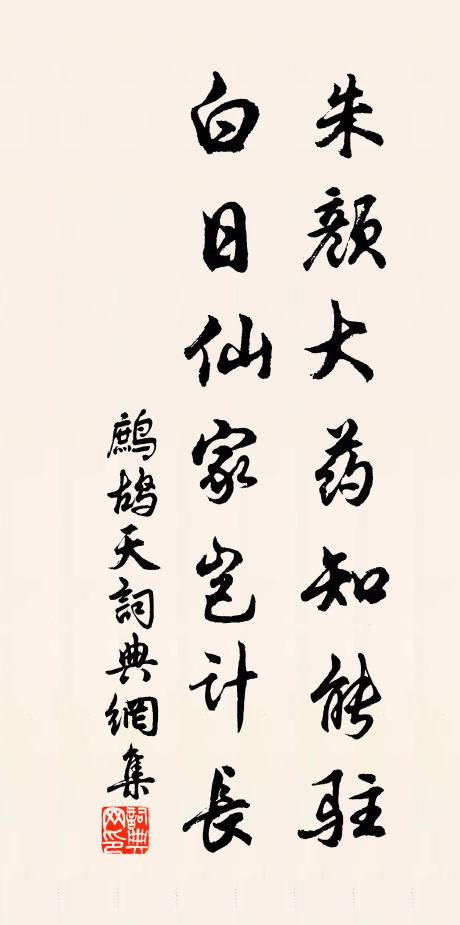 朱颜大药知能驻
白日仙家岂计長
鷓鴣天詞典網集
詞典
网印